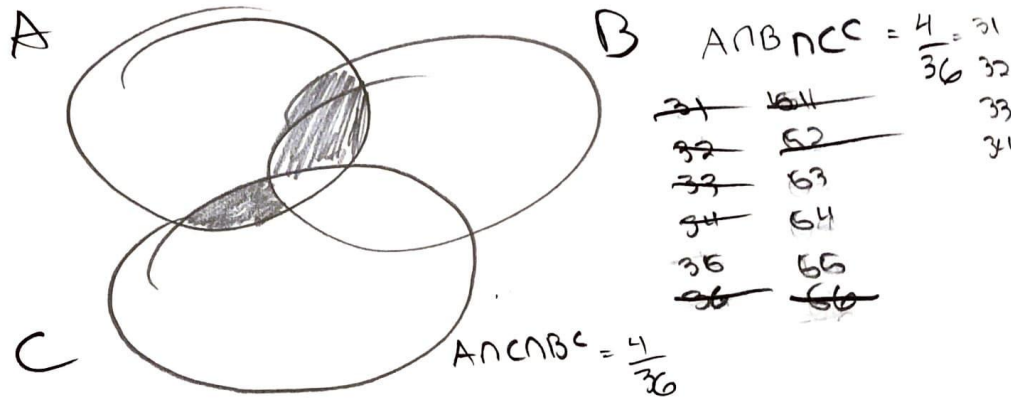 A
B
A∩B∩Cᶜ = 4/36 = 31
32
33
34
31 51
32 52
33 53
34 54
35 55
36 56
C
A∩C∩Bᶜ = 4/36